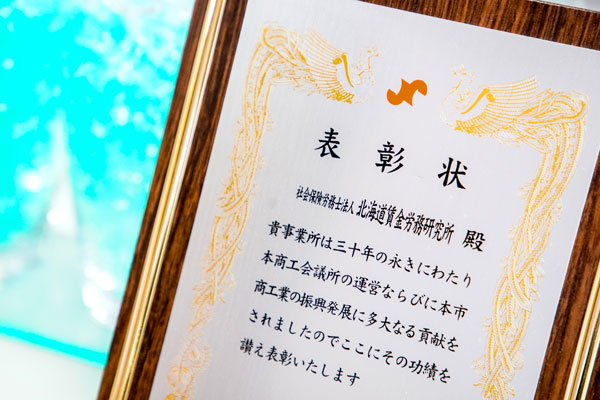 表彰状
社会保険労務士法人 北海道賃金労務研究所 殿
貴事業所は三十年の永きにわたり
本商工会議所の運営ならびに本市
商工業の振興発展に多大なる貢献を
されましたのでここにその功績を
讃え表彰いたします